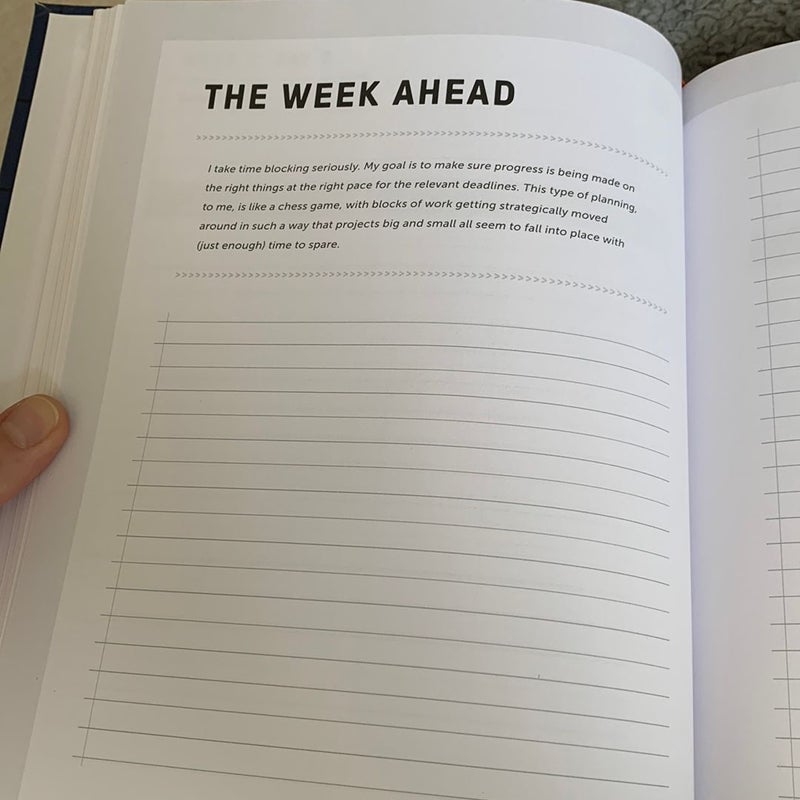 THE WEEK AHEAD
I take time blocking seriously. My goal is to make sure progress is being made on
the right things at the right pace for the relevant deadlines. This type of planning,
to me, is like a chess game, with blocks of work getting strategically moved
around in such a way that projects big and small all seem to fall into place with
(just enough) time to spare.